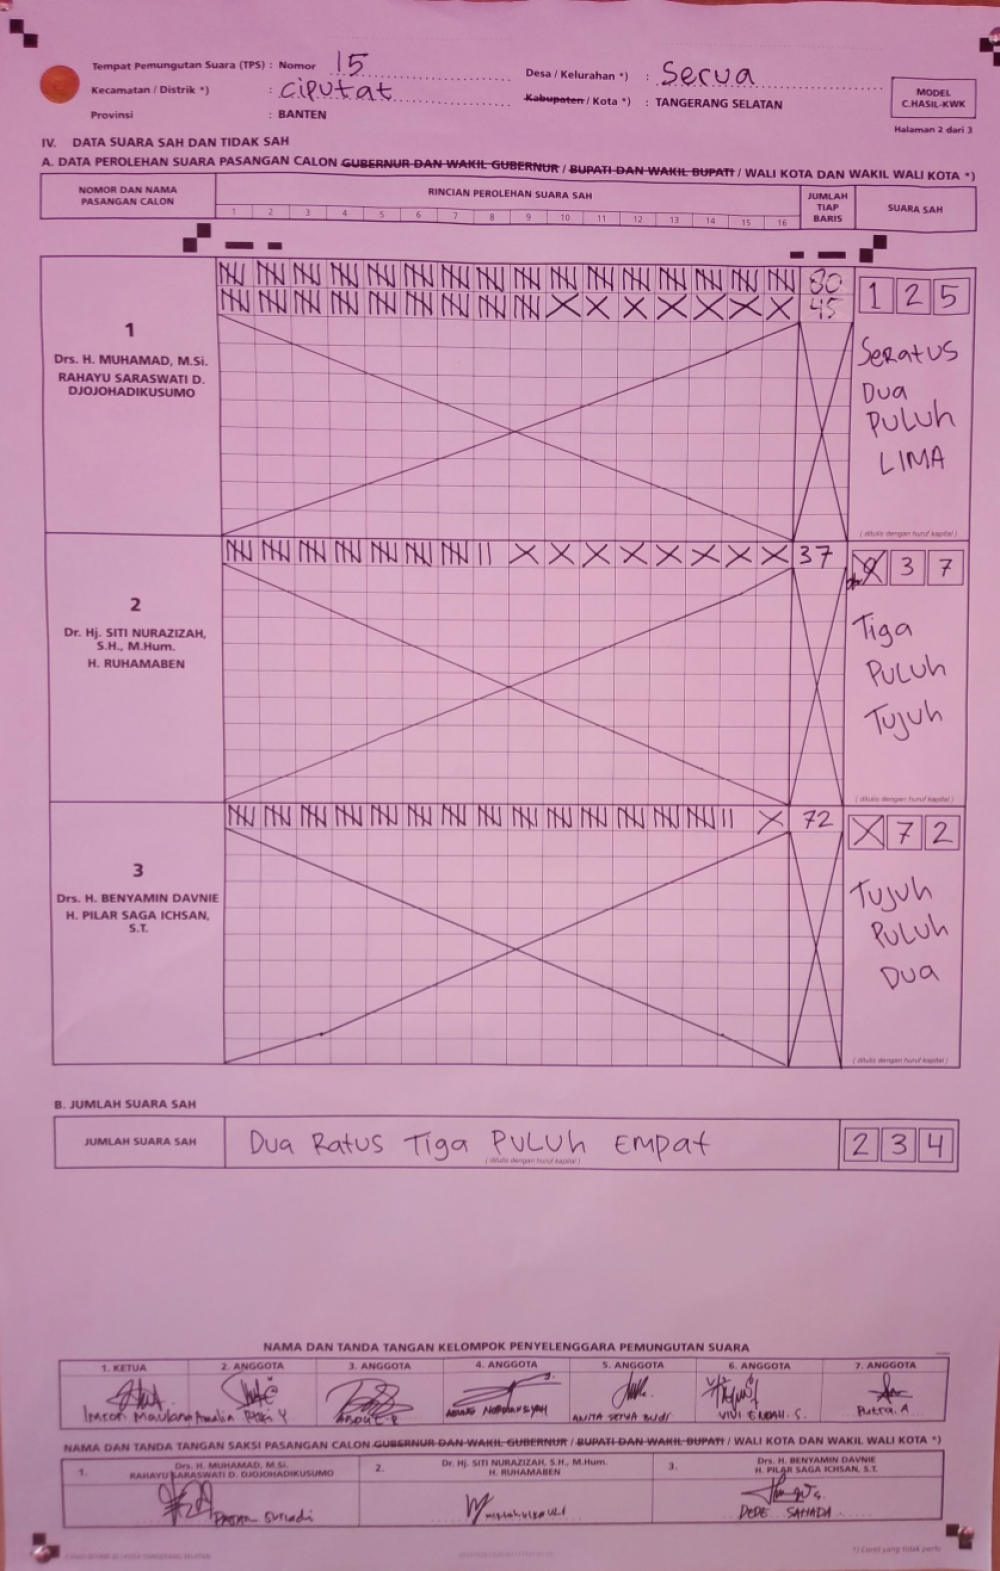 Tempat Pemungutan Suara (TPS) : Nomor 15
Desa / Kelurahan *) : Serua
Kecamatan / Distrik *) : Ciputat
Kabupaten / Kota *) : TANGERANG SELATAN
Provinsi : BANTEN
MODEL
C.HASIL-KWK
Halaman 2 dari 3
IV. DATA SUARA SAH DAN TIDAK SAH
A. DATA PEROLEHAN SUARA PASANGAN CALON GUBERNUR DAN WAKIL GUBERNUR / BUPATI DAN WAKIL BUPATI / WALI KOTA DAN WAKIL WALI KOTA *)
NOMOR DAN NAMA
PASANGAN CALON
RINCIAN PEROLEHAN SUARA SAH
1 2 3 4 5 6 7 8 9 10 11 12 13 14 15 16
JUMLAH
TIAP
BARIS
SUARA SAH
1
Drs. H. MUHAMAD, M.Si.
RAHAYU SARASWATI D.
DJOJOHADIKUSUMO
80
45
1 2 5
Seratus
Dua
Puluh
LIMA
( ditulis dengan huruf kapital )
2
Dr. Hj. SITI NURAZIZAH,
S.H., M.Hum.
H. RUHAMABEN
37
X 3 7
Tiga
Puluh
Tujuh
( ditulis dengan huruf kapital )
3
Drs. H. BENYAMIN DAVNIE
H. PILAR SAGA ICHSAN,
S.T.
72
X 7 2
Tujuh
Puluh
Dua
( ditulis dengan huruf kapital )
B. JUMLAH SUARA SAH
JUMLAH SUARA SAH
Dua Ratus Tiga Puluh Empat
( ditulis dengan huruf kapital )
2 3 4
NAMA DAN TANDA TANGAN KELOMPOK PENYELENGGARA PEMUNGUTAN SUARA
1. KETUA 2. ANGGOTA 3. ANGGOTA 4. ANGGOTA 5. ANGGOTA 6. ANGGOTA 7. ANGGOTA
Imron Maulana Amalia Y ANITA SETYA BUDI VIVI ENDAH. S. Putra. A
NAMA DAN TANDA TANGAN SAKSI PASANGAN CALON GUBERNUR DAN WAKIL GUBERNUR / BUPATI DAN WAKIL BUPATI / WALI KOTA DAN WAKIL WALI KOTA *)
1. Drs. H. MUHAMAD, M.Si.
RAHAYU SARASWATI D. DJOJOHADIKUSUMO
2. Dr. Hj. SITI NURAZIZAH, S.H., M.Hum.
H. RUHAMABEN
3. Drs. H. BENYAMIN DAVNIE
H. PILAR SAGA ICHSAN, S.T.
Suriadi
DEDE SAHADA
*) Coret yang tidak perlu